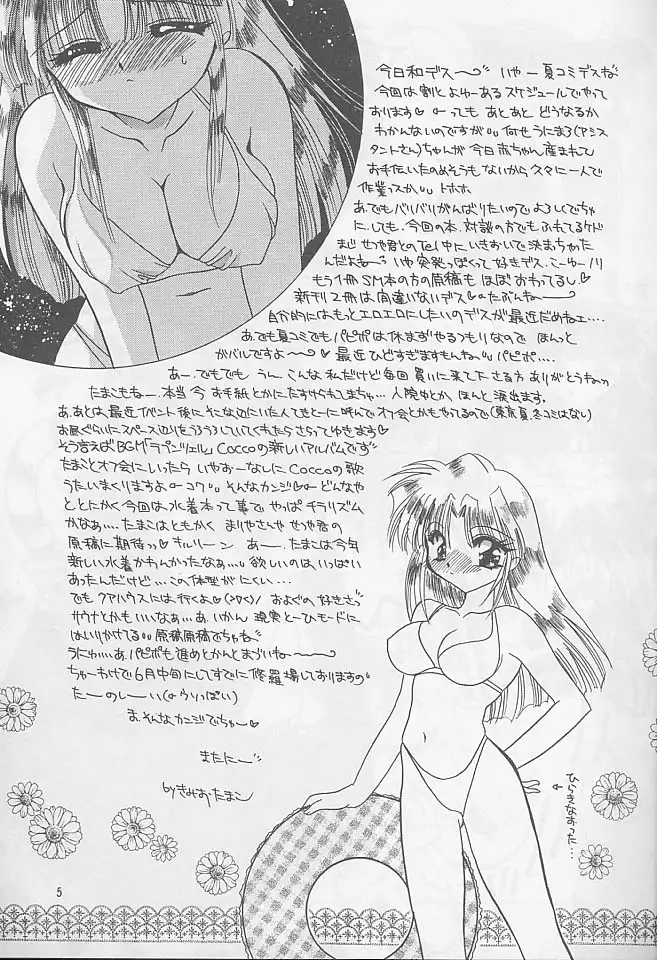 今日和デス〜〃 いやー夏コミデスね
今回は割とよゆーあるスケジュールでやって
おります♡ーっても あとあと どうなるか
わかんないのですが〃何せうにまろ(アシス
タントさん)ちゃんが今日赤ちゃん産まれて
お手伝いたのめそうもないから久々に一人で
作業っスか〃トホホ
あ、でもバリバリがんばりたいのでよろしくでちゃ
にしても、今回の本、対談の方でもふれてるケド
まじ せつや君とのTel中にいきおいで決まっちゃった
んだよね〜〃いや突発っぽくって好きデス、こーゆーノリ
もう1冊SM本の方の原稿もほぼおわってるし
新刊2冊は間違いないデス♡たぶんねー
自分的にはもっとエロエロにしたいのデスが最近だめねェ‥‥
あ、でも夏コミでもパピポは休まずやるつもりなので ほんっと
ガバルですよ〜〜♡最近ひどすぎますもんね〃パピポ‥‥
あー、でもでも うんー、こんな私だけど毎回買いに来て下さる方ありがとうねっ
たまこもねー、本当今お手紙とかにたすけられこまちゃ‥
あ、あとは、最近イベント後にそこな辺にいた人てきとーに呼んでオフ会とかもやってるので(東京夏、冬コミはなし)
お昼ぐらいスペース辺りをうろうろしていてくれたらさらってゆきます♡
そう言えばBGM「ラプンツェル」Coccoの新しいアルバムです
たまことオフ会にいったら いやおーなしにCoccoの歌
うたいまくりますよーコワ〃そんなカンジ♡ーどんなや
ととにかく今回は、水着本って事で、やっぱチラリズム
かなぁ‥‥たまこはともかく まりやさんや せつや君の
原稿に期待っ♡キルリーン あー‥たまこは今年
新しい水着かわんかったなぁ‥〃欲しいのはいっぱい
あったんだけど‥‥この体型がにくい‥
でもクアハウスには行くよ♡ およぐの好きさっ
サウナとかもいいなぁ‥あ、いかん 現実とーひモードに
はいりかけてる〃原稿原稿でちゃね
うにゅ‥‥あ、パピポも進めとかんとまづいねー
ちゅーわけで6月中旬にしてすでに修羅場しておりますの
たーのしーい
ま、そんなカンジでちゃー♡
またにー〃
byきみおたまこ
ひらきなおった‥‥
5